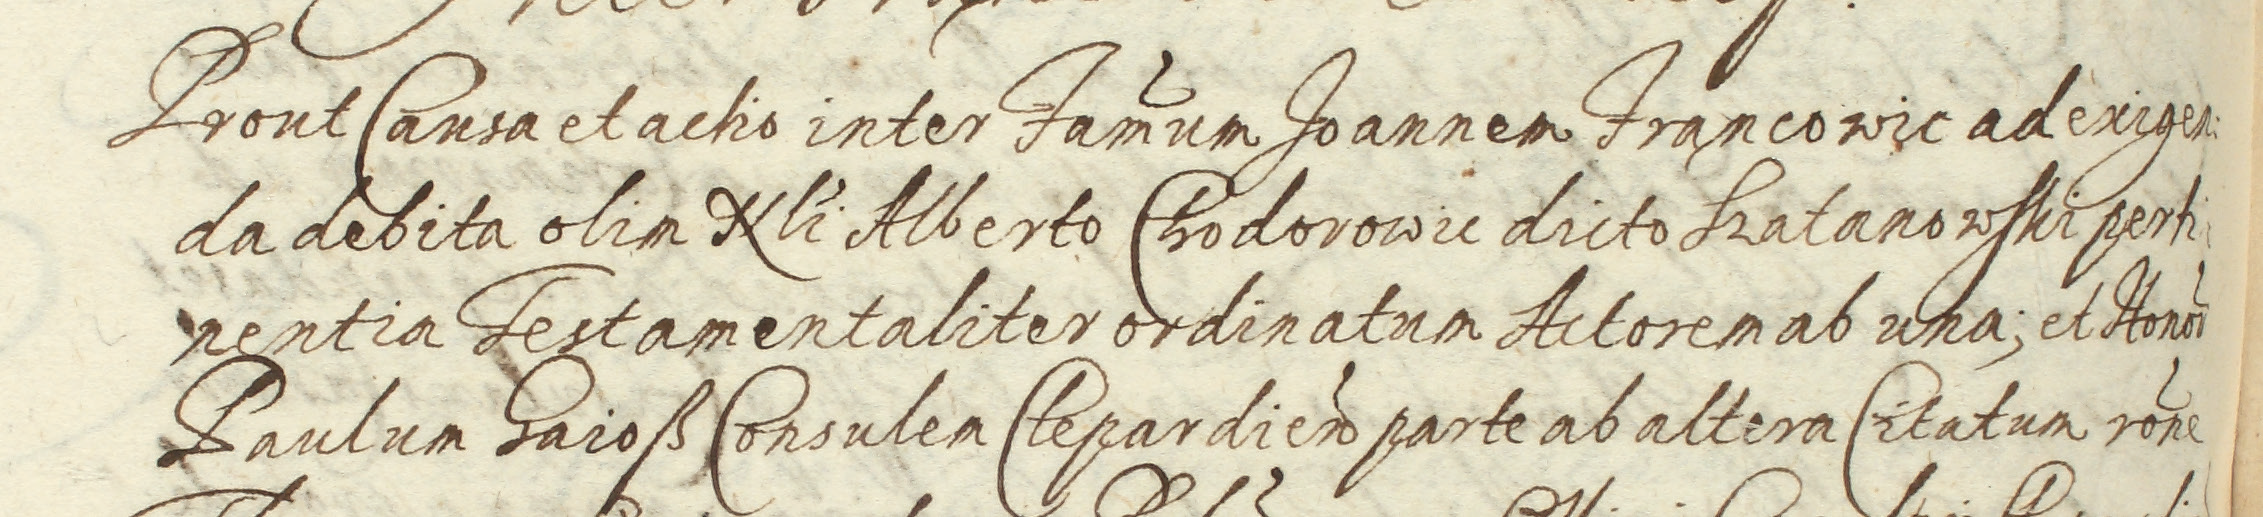 Prout Causa et actio inter Famũm Joannem Francowic ad exigen:
da debita olim Nlĩ Alberto Chodorowic dicto Szatanowski perti
nentia Testamentaliter ordinatum Actorem ab una; et Honõ
Paulum Haioß Consulem Clepardieñ parte ab altera Citatum rõne